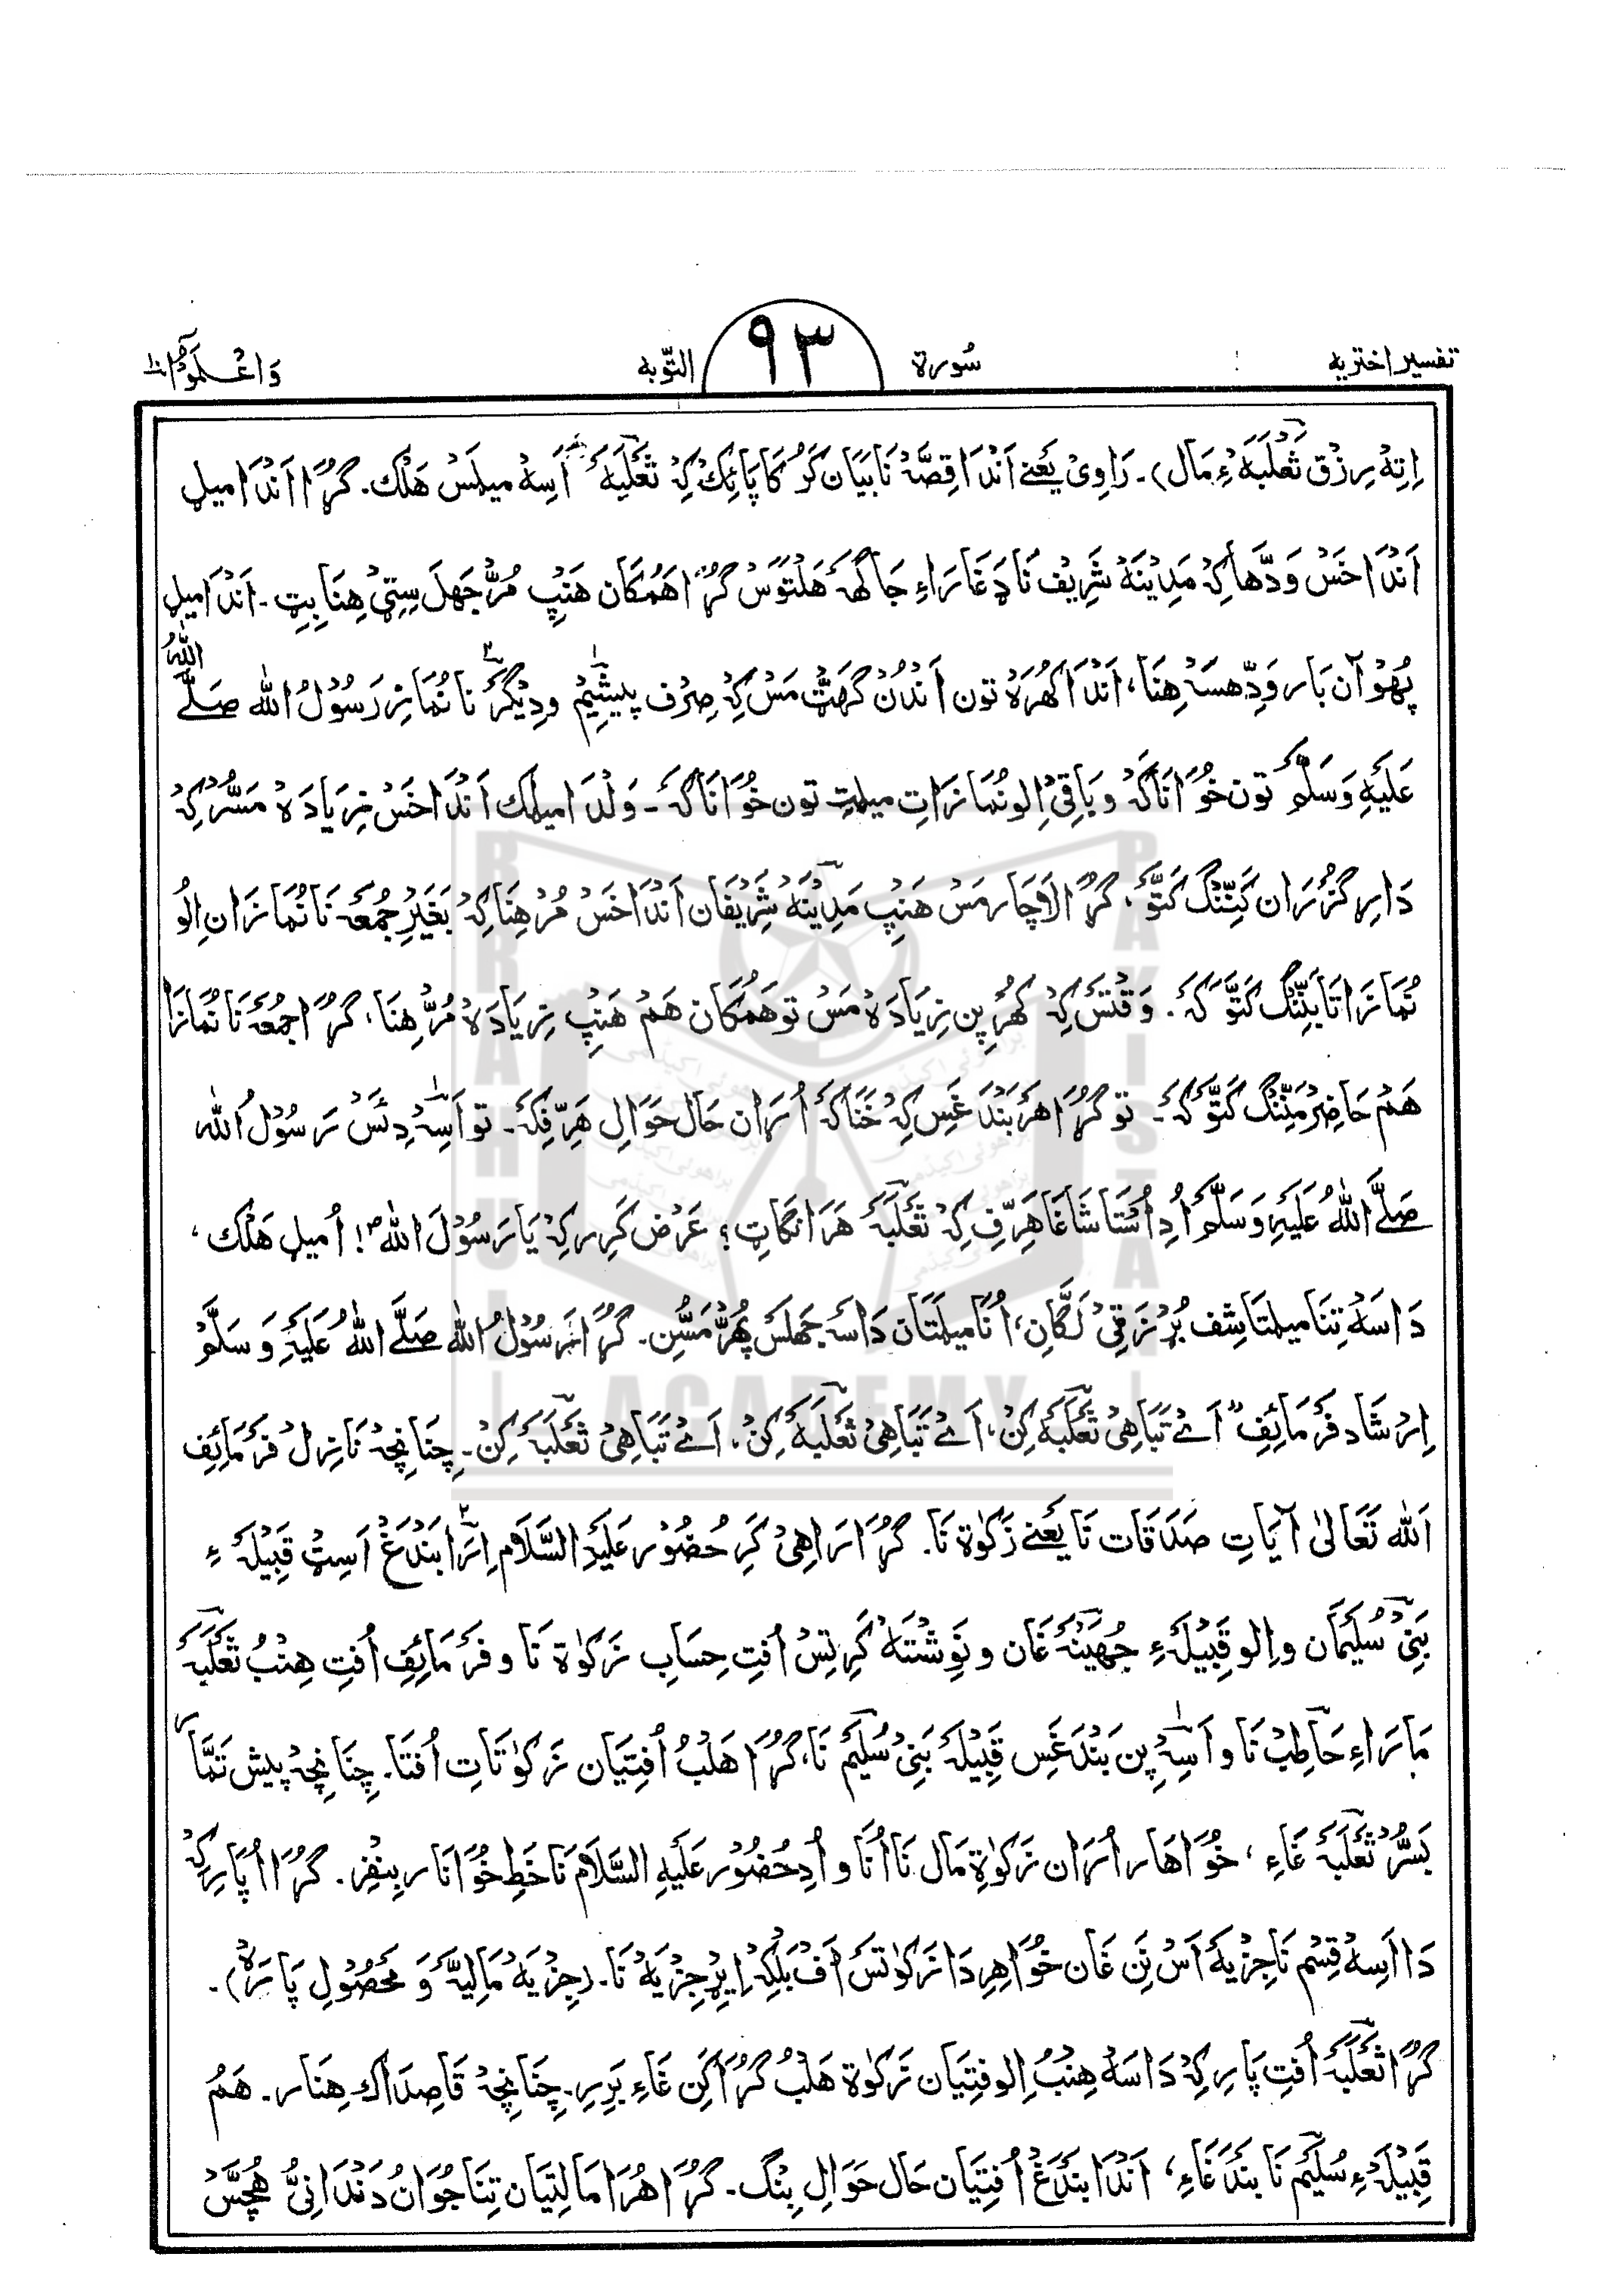 تفسیر اختریه سُورة ٩٣ التّوبه وَاعْلَمُوْآ ١٠
اِتِهْ رِزْق ثَعْلَبَهْ ءِ مَال)۔ رَاوِیْ یَعْنِے اَنْدَا قِصَّہْ نَا بَیَان کَرُکَا پَائِکْ کِہْ ثَعْلَبَهْ اَسِهْ میلَسْ هَلْک۔ گُرَا اَنْدَا میل
اَنْدَا خَسْ وَدَّهَا کِہْ مَدِیْنَهْ شَرِیْف نَا دَغَارَاءِ جَاگَهْ هَلْتَوْسْ گُرَا هَمْکَان هَنِپ مُرَّ جَهَلَ سِتِیْ هِنَا بِیتِ۔ اَنْدَا میل
پُهُوْ آن بَار وَدِّهسَہْ هِنَا، اَنْدَا کُهْرَهْ تون اَنْدُنْ گَهَٹْ مَسْ کِہْ صِرْف پیشِیْم ودِیْگَرْ نَا نُمَازِ رَسُوْلُ اللّٰه صَلَّے اللّٰهُ
عَلَیْهِ وَسَلَّمْ تون خُوَانَاکَہْ و بَاقِیْ اِلو نُمَازَاتِ میلتِ تون خُوَانَاکَہْ۔ وَلْدَا میلک اَنْدَاخَسْ زِیَادَهْ مَسُّرْ کِہْ
دَارِ گُزْرَان کَنِّنْگ کَتَوْ، گُرَا لَاچَار مَسْ هَنِپ مَدِیْنَهْ شَرِیْفَان اَنْدَاخَسْ مُرْ هِنَا کِہْ بَغَیْرِ جُمُعَہ نَا نُمَازَان اِلو
نُمَازَاتَا بَنِّنْگ کَتَوْکَہْ۔ وَقْتَسْ کِہْ کُهْر پِن زِیَادَهْ مَسْ تو هَمْکَان هَمْ هَنِپ زِیَادَهْ مُرَّ هِنَا، گُرَا جُمُعَہْ نَا نُمَازَا
هَمْ حَاضِرْ مَنِّنْگ کَتَوْکَہْ۔ تو گُرَا هَرْ بَنْدَغَسِ کِہْ خَنَاکَہْ اُرَان حَال حَوَالِ هَرِّفِکَہْ۔ تو اَسِہْ دِئَسْ رَسُوْلُ اللّٰه
صَلَّے اللّٰهُ عَلَیْهِ وَسَلَّمْ اُدِ اُسْتَا شَاغَا هَرِّفِ کِہْ ثَعْلَبَہْ هَرَانگَاتِ؟ عَرْض کَرِر کِہْ یَا رَسُوْلَ اللّٰه! اُ میل هَلْک،
دَاسَهْ تِنَا میلتَا شِف بُرْزَ قِیْ لَگَّانِ، اُنَا میلتَان دَاسَہ جَهلَسْ پُهُرْ مَسُّنِ۔ گُرَا رَسُوْلُ اللّٰه صَلَّے اللّٰهُ عَلَیْهِ وَسَلَّمْ
اِرْشَاد فَرْمَائِفِ اَےْ تَبَاهِیْ ثَعْلَبَهْ کِنْ، اَےْ تَبَاهِیْ ثَعْلَبَهْ کِنْ، اَےْ تَبَاهِیْ ثَعْلَبَهْ کِنْ۔ چِنَانِچِہْ نَازِلْ فَرْمَائِفِ
اَللّٰه تَعَالٰی آیَاتِ صَدَقَات نَا یَعْنِے زَکٰوة نَا۔ گُرَا رَاهِیْ کَرِ حُضُوْر عَلَیْهِ السَّلَام اِرَا بَنْدَغْ اَسِٹ قَبِیْلَہْ ءِ
بَنِیْ سُلَیْمَان و اِلو قَبِیْلَہْءِ جُهَیْنَہْ غَان و نَوِشْتَهْ کَرِ تِسْ اُفتِ حِسَابِ زَکٰوة نَا و فَرْمَائِفِ اُفتِ هِنْبُ ثَعْلَبَہْ
مَارَاءِ حَاطِبْ نَا و اَسِہْ پِن بَنْدَغَسِ قَبِیْلَہْ بَنِیْ سُلَیْم نَا، گُرَا هَلْبُ اُفتِیَان زَکٰوتَاتِ اُفتَا۔ چِنَانِچِہْ پیش تَمَّار
بَسُّرْ ثَعْلَبَہْ غَاءِ، خُوَاهَار اُرَان زَکٰوةِ مَال نَا اُنَا و اُدِ حُضُوْر عَلَیْهِ السَّلَام نَا خَطِ خُوَانَار بِنفِر۔ گُرَا اُ پَارِ کِہْ
دَا اَسِهْ قِسْم نَا جِزْیَهْ اَسْ نَن غَان خُوَاهِرِ دَا زَکٰوتَسْ اَف بَلْکِہْ اِیْرْ جِزْیَهْ نَا۔ (جِزْیَهْ مَالِیَہْ وَ مَحْصُوْل پَارَهْ)۔
گُرَا ثَعْلَبَہْ اُفتِ پَارِ کِہْ دَاسَهْ هِنْبُ اِلوفتِیَان زَکٰوة هَلْبُ گُرَا کَن غَاءِ بَرِر۔ چِنَانِچِہْ قَاصِدَاک هِنَار۔ هَمْ
قَبِیْلَہْءِ سُلَیْم نَا بَنْدَغَاءِ، اَنْدَا بَنْدَغْ اُفتِیَان حَال حَوَالِ بِنْگ۔ گُرَا هُرَا مَالتِیَان تِنَا جُوَانُ دَنْدَانِیُّ هُچَّسْ
BRAHUI ACADEMY PAKISTAN
براهوئی اکیڈمی